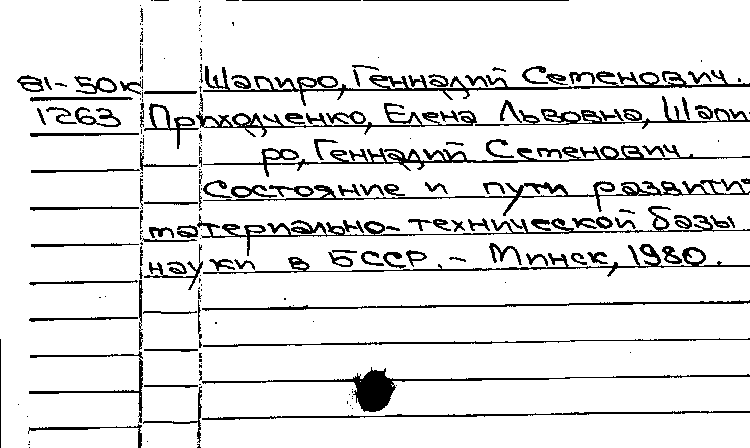 81-50к Шапиро, Геннадий Семенович.
1263 Приходченко, Елена Львовна, Шапи-
ро, Геннадий Семенович.
Состояние и пути развития
материально-технической базы
науки в БССР. - Минск, 1980.